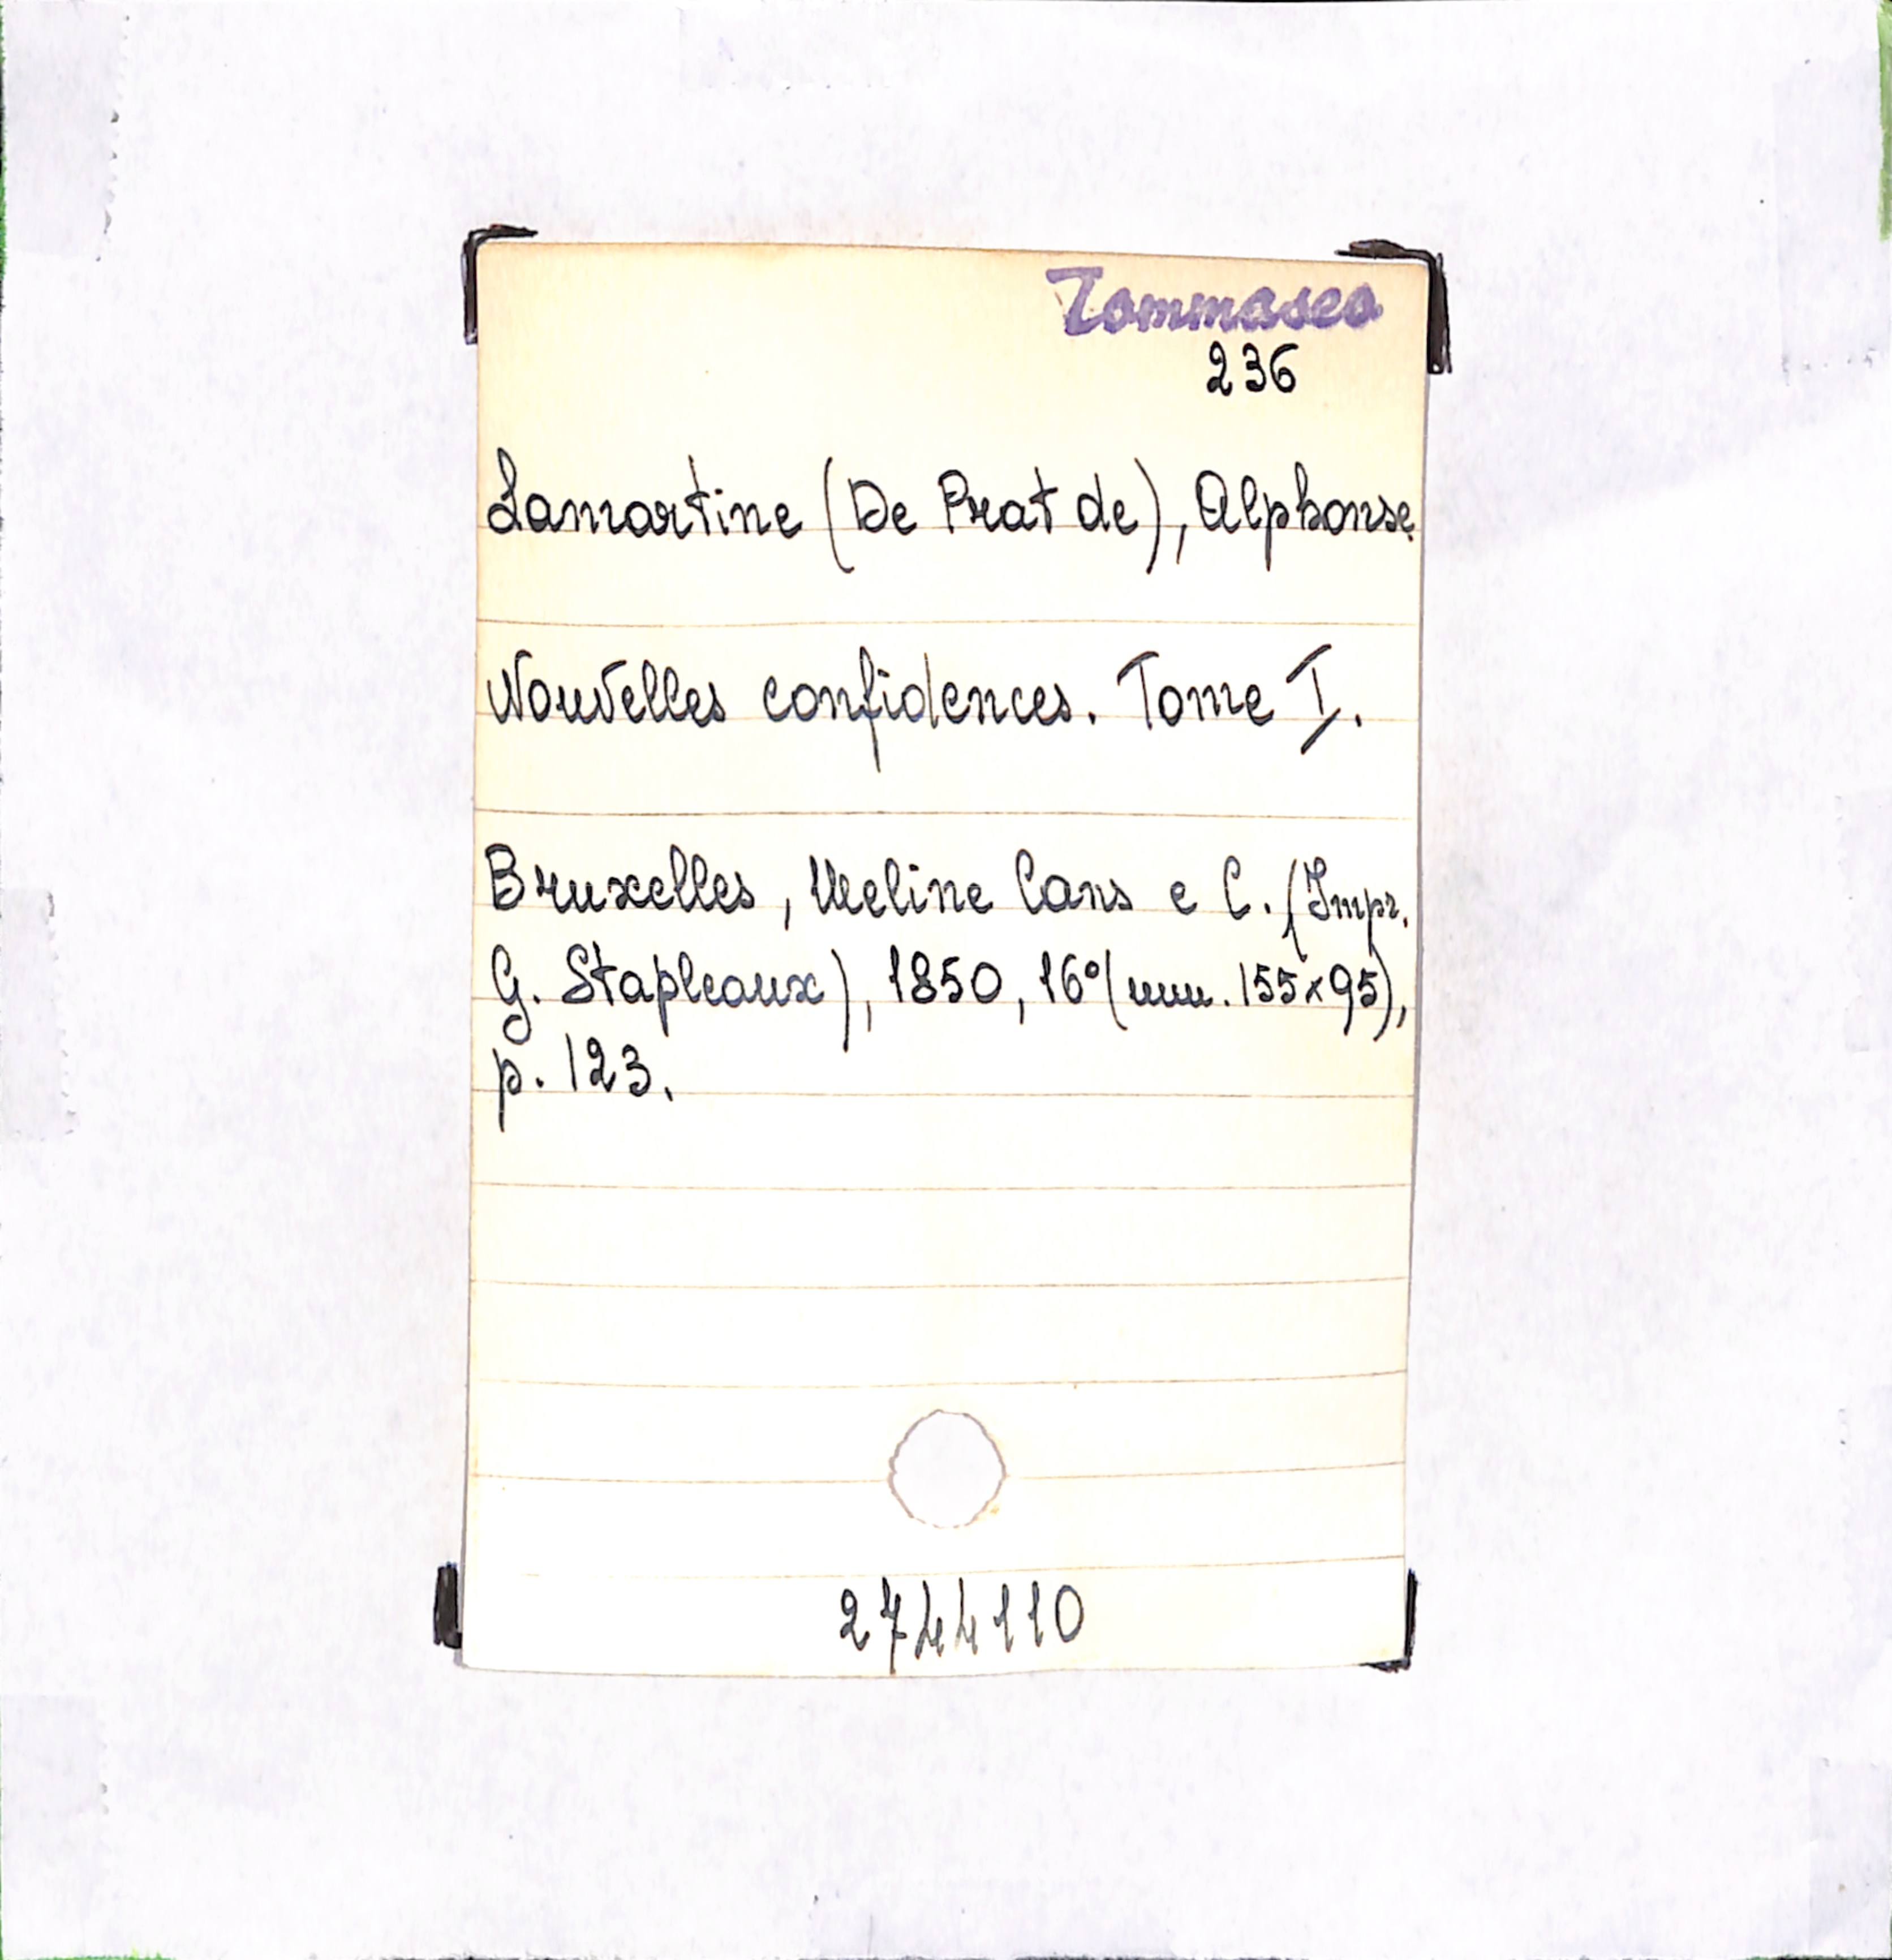 Tommaseo
236
Lamartine (De Prat de), Alphonse
Nouvelles confidences. Tome I.
Bruxelles, Meline Cans e C. (Impr.
G. Stapleaux), 1850, 16º (mm. 155x95),
p. 123.
2744110